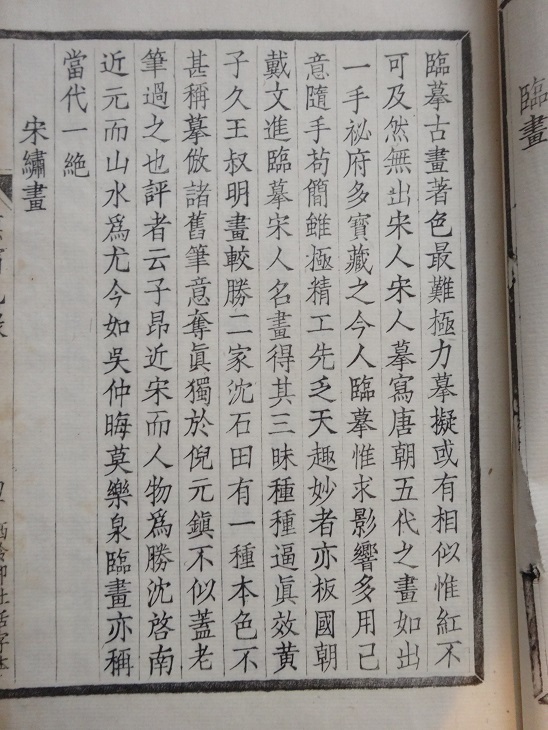 臨畫
臨摹古畫著色最難極力摹擬或有相似惟紅不
可及然無出宋人宋人摹寫唐朝五代之畫如出
一手祕府多寶藏之今人臨摹惟求影響多用己
意隨手苟簡雖極精工先乏天趣妙者亦板國朝
戴文進臨摹宋人名畫得其三昧種種逼眞效黃
子久王叔明畫較勝二家沈石田有一種本色不
甚稱摹倣諸舊筆意奪眞獨於倪元鎭不似蓋老
筆過之也評者云子昂近宋而人物爲勝沈啓南
近元而山水爲尤今如吳仲晦莫樂泉臨畫亦稱
當代一絶
宋繡畫